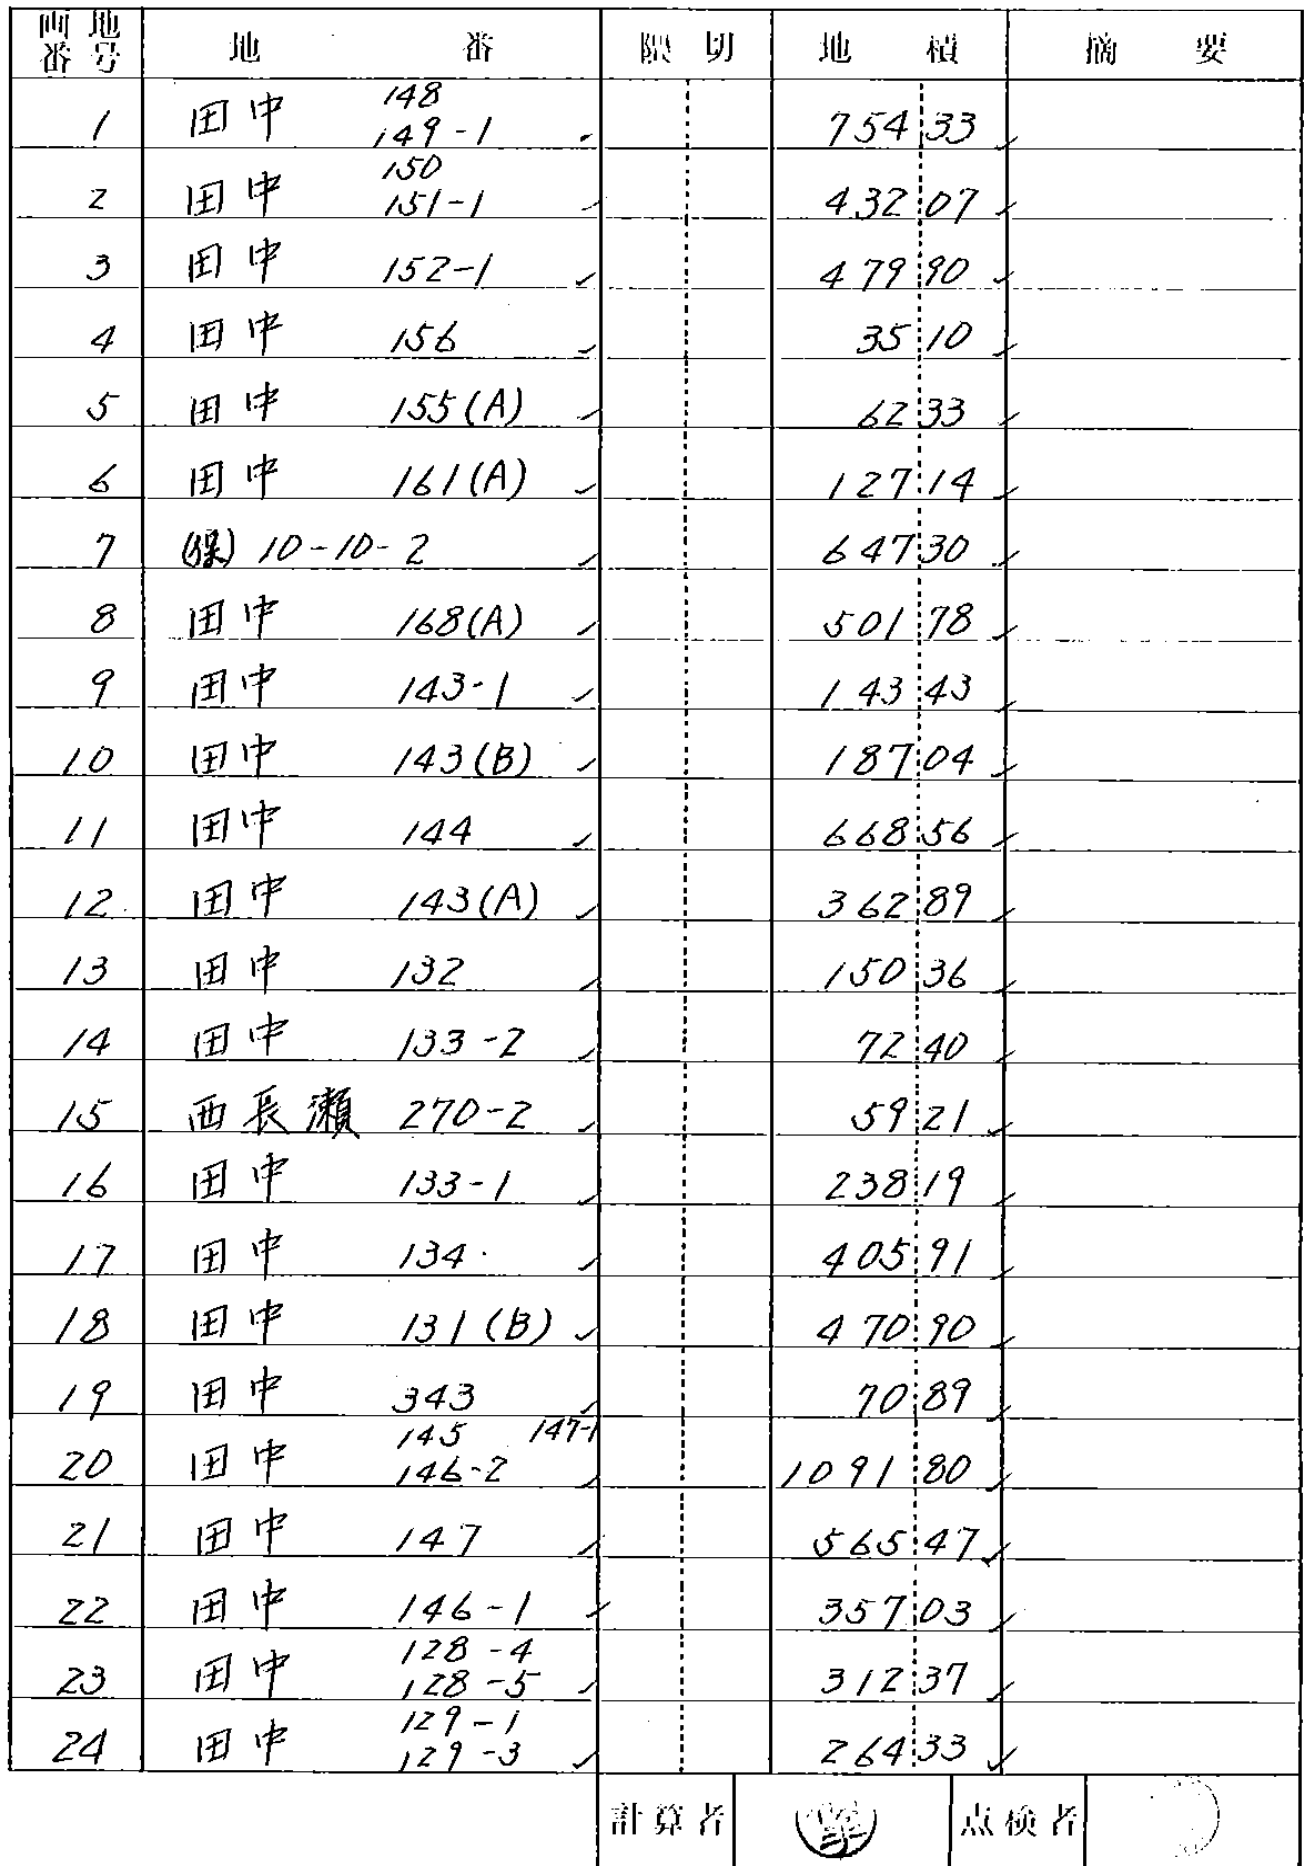 画地番号 地番 隅切 地積 摘要
1 田中 148 149-1 754 33
2 田中 150 151-1 432 07
3 田中 152-1 479 90
4 田中 156 35 10
5 田中 155(A) 62 33
6 田中 161(A) 127 14
7 (保) 10-10-2 647 30
8 田中 168(A) 501 78
9 田中 143-1 143 43
10 田中 143(B) 187 04
11 田中 144 668 56
12 田中 143(A) 362 89
13 田中 132 150 36
14 田中 133-2 72 40
15 西長瀬 270-2 59 21
16 田中 133-1 238 19
17 田中 134 405 91
18 田中 131(B) 470 90
19 田中 343 70 89
20 田中 145 147-1 146-2 1091 80
21 田中 147 565 47
22 田中 146-1 357 03
23 田中 128-4 128-5 312 37
24 田中 129-1 129-3 264 33
計算者 点検者